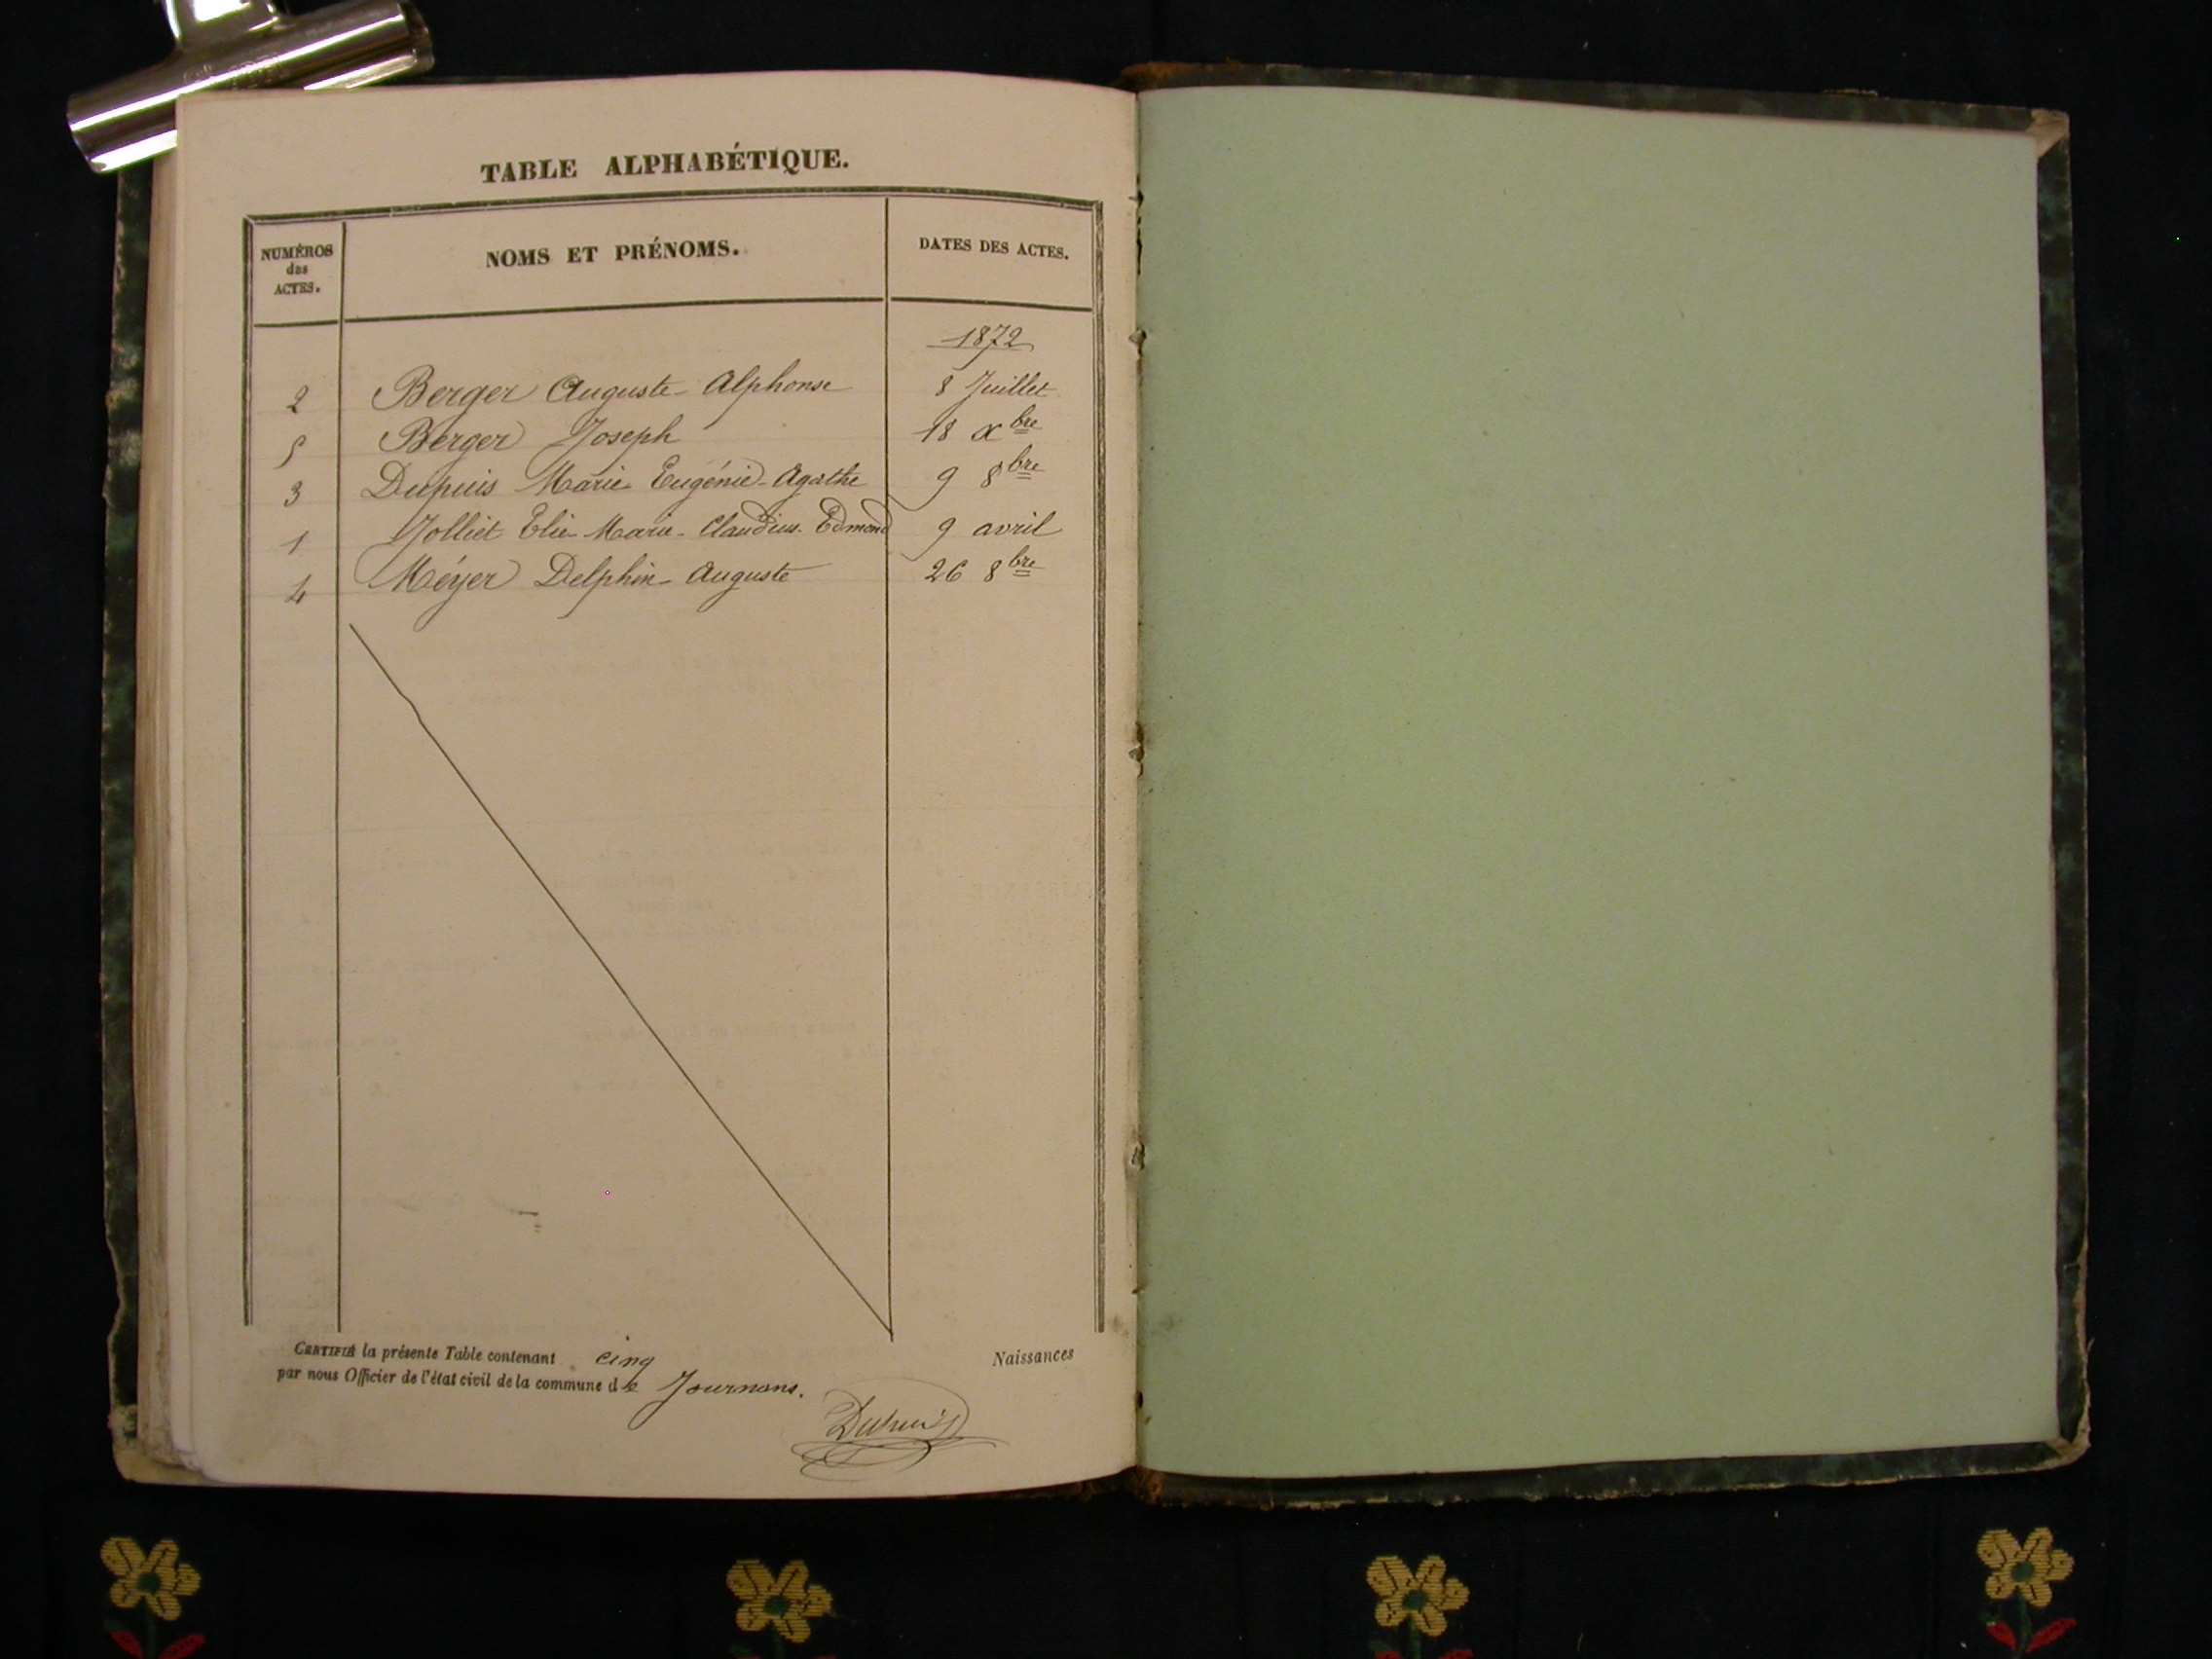 TABLE ALPHABÉTIQUE.
NUMÉROS des ACTES. NOMS ET PRÉNOMS. DATES DES ACTES.
1872
2 Berger Auguste-Alphonse 8 Juillet
5 Berger Joseph 18 Xbre
3 Dupuis Marie Eugénie-Agathe 9 8bre
1 Jolliet Elie-Marie-Claudius-Edmond 9 avril
4 Méyer Delphin-Auguste 26 8bre
CERTIFIÉ la présente Table contenant cinq Naissances
par nous Officier de l'état civil de la commune de Journans.
Dupuis